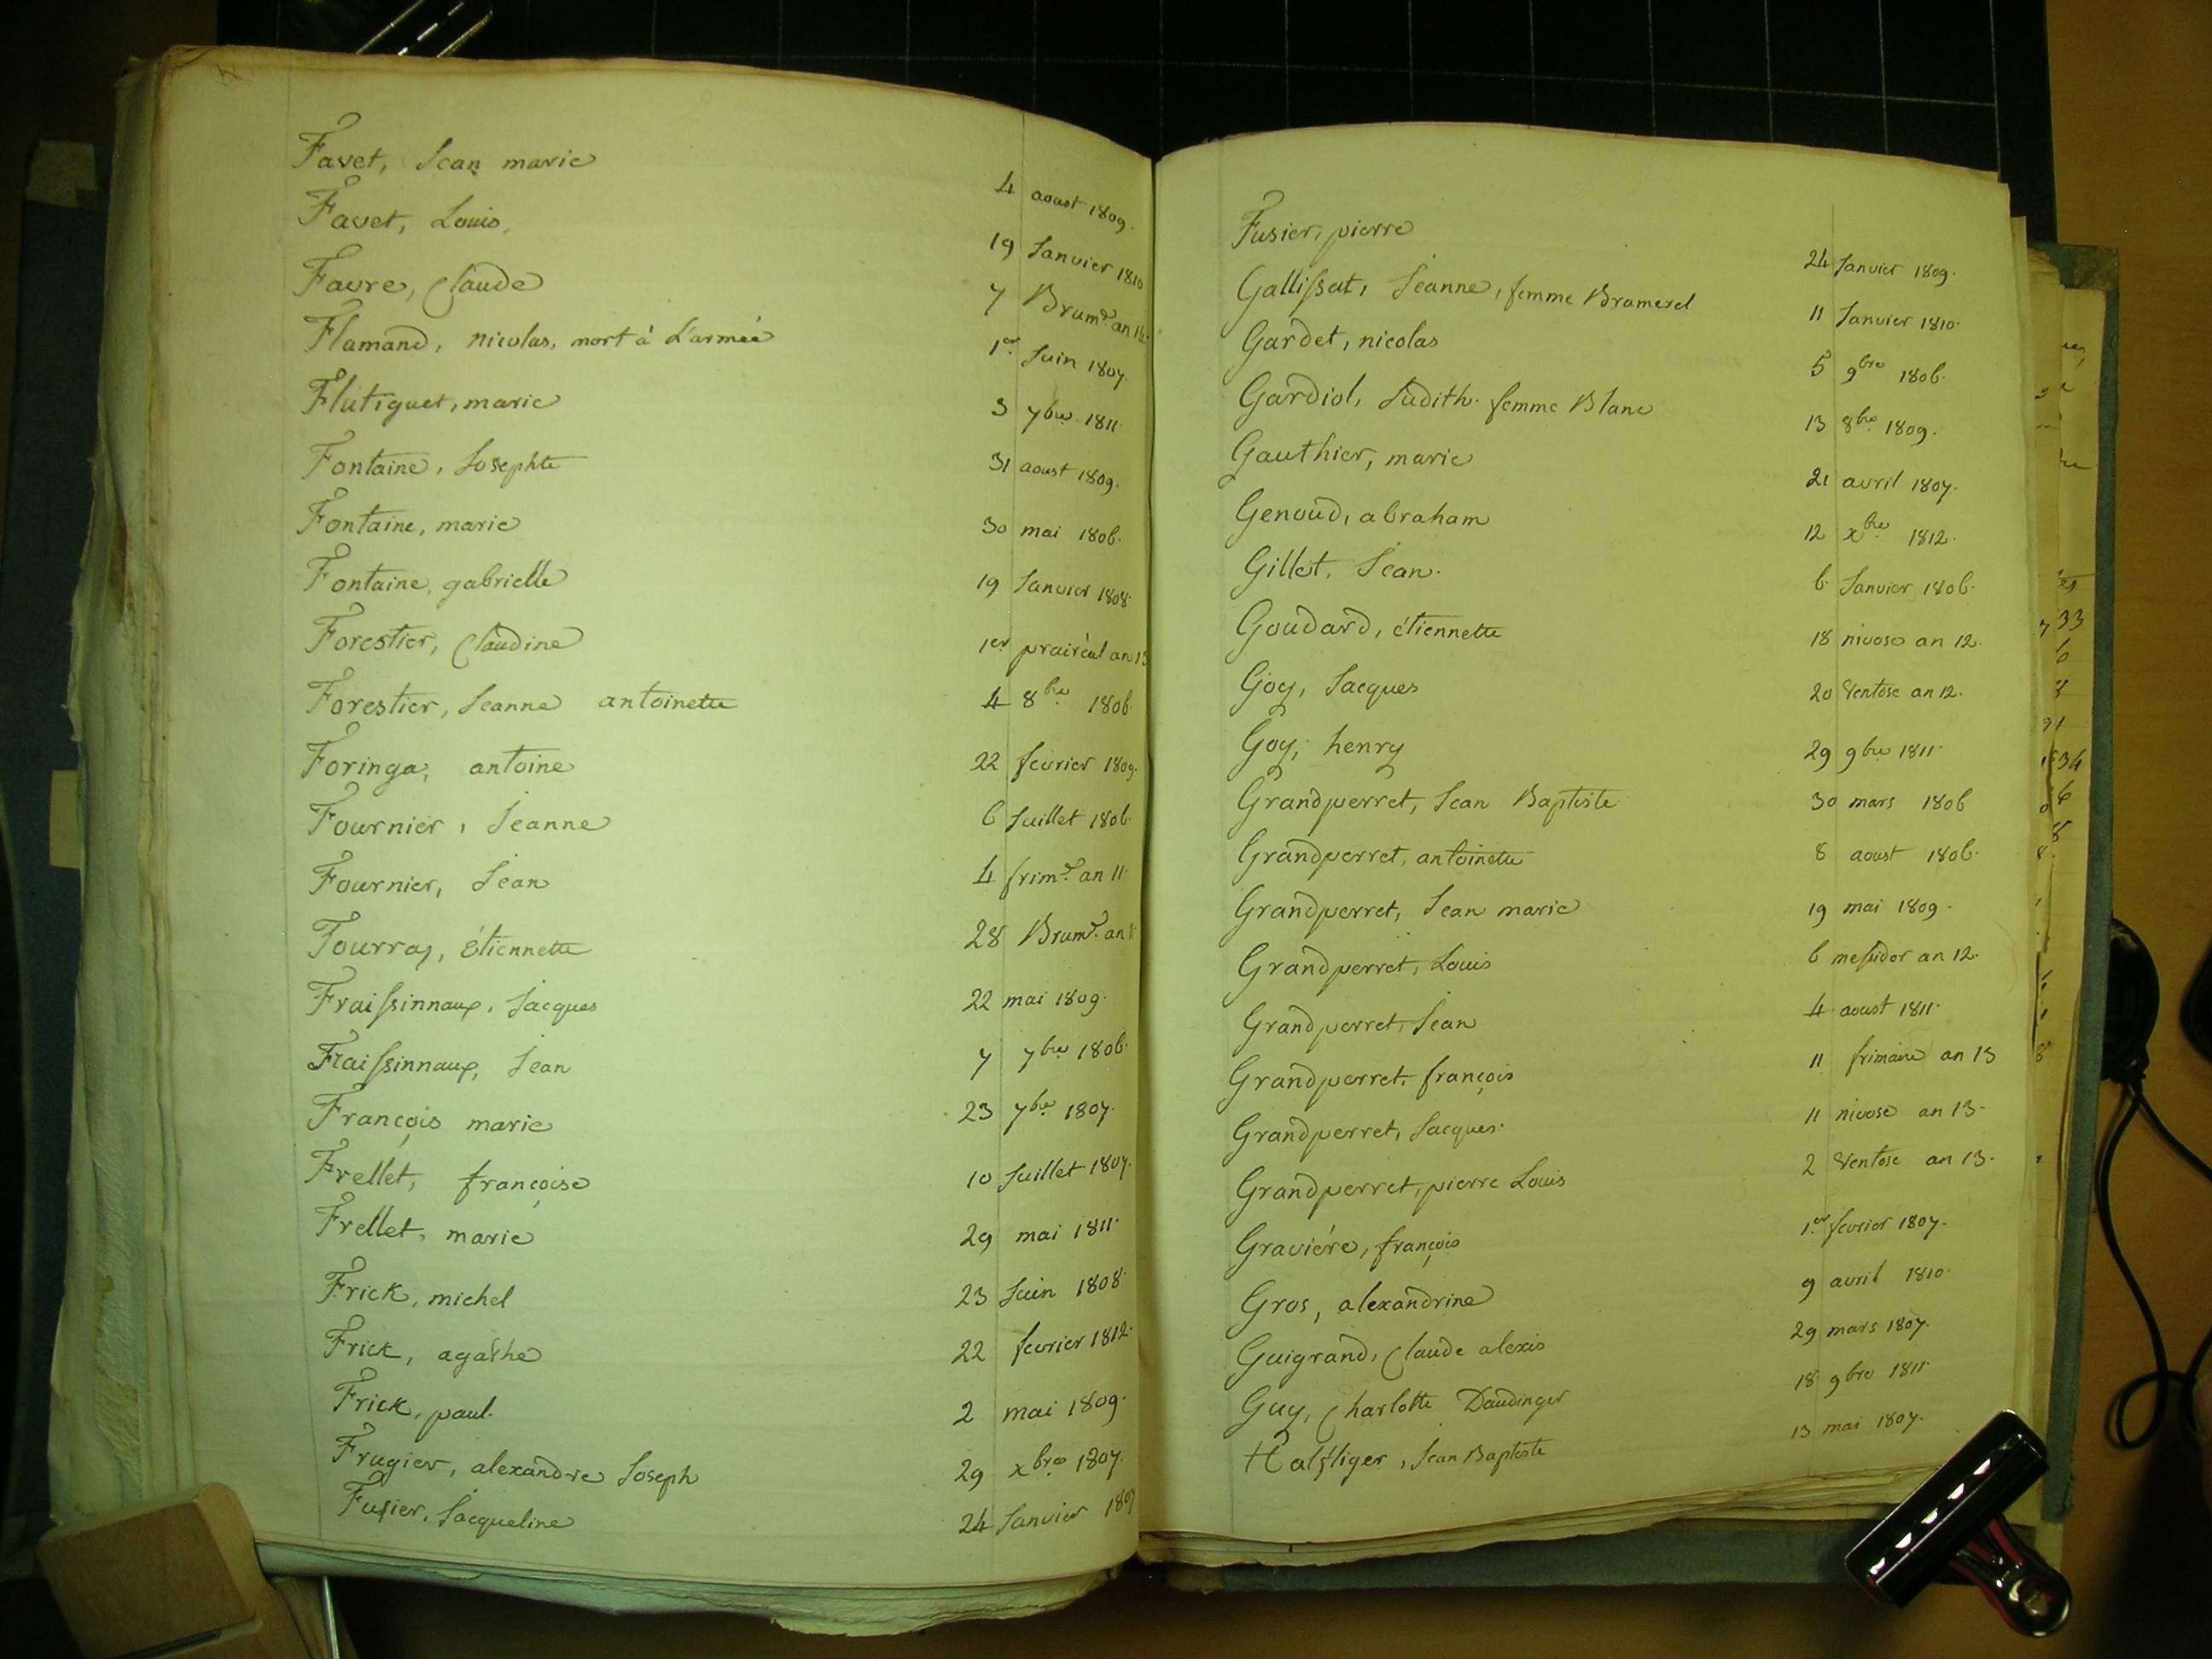 Favet, Jean marie 4 aoust 1809.
Favet, Louis, 19 Janvier 1810
Favre, Claude 7 Brum.re an
Flamand, nicolas, mort à L'armée 1.er Juin 1807.
Flutiguet, marie 3 7bre 1811.
Fontaine, Josephte 31 aoust 1809.
Fontaine, marie 30 mai 1806.
Fontaine, gabrielle 19 Janvier 1808.
Forestier, Claudine 1er prairéal an 13
Forestier, Jeanne antoinette 4 8bre 1806.
Foringa, antoine 22 fevrier 1809.
Fournier, Jeanne 6 Juillet 1806.
Fournier, Jean 4 frim.re an 11.
Fourray, Étiennette 28 Brum.re an
Fraissinnaux, Jacques 22 mai 1809.
Fraissinnaux, Jean 7 7bre 1806.
François marie 23 7bre 1807.
Frellet, françoise 10 Juillet 1807.
Frellet, marie 29 mai 1811.
Frick, michel 23 Juin 1808.
Frick, agathe 22 fevrier 1812.
Frick, paul. 2 mai 1809.
Frugier, alexandre Joseph 29 xbre 1807.
Fusier, Jacqueline 24 Janvier
Fusier, pierre 24 Janvier 1809.
Gallissat, Jeanne, femme Bramerel 11 Janvier 1810.
Gardet, nicolas 5 9bre 1806.
Gardiol, Judith. femme Blanc 13 8bre 1809.
Gauthier, marie 21 avril 1807.
Genoud, abraham 12 xbre 1812.
Gillet, Jean. 6 Janvier 1806.
Goudard, étiennette 18 nivose an 12.
Goy, Jacques 20 Ventose an 12.
Goy, henry 29 9bre 1811.
Grandperret, Jean Baptiste 30 mars 1806
Grandperret, antoinette 8 aoust 1806.
Grandperret, Jean marie 19 mai 1809.
Grandperret, Louis 6 messidor an 12.
Grandperret, Jean 4 aoust 1811.
Grandperret, françois 11 frimaire an 13
Grandperret, Jacques. 11 nivose an 13.
Grandperret, pierre Louis 2 Ventose an 13.
Graviére, françois 1.er fevrier 1807.
Gros, alexandrine 9 avril 1810.
Guigrand, Claude alexis 29 mars 1807.
Guy, Charlotte Daudinger 18 9bre 1811.
Halftiger, Jean Baptiste 13 mai 1807.